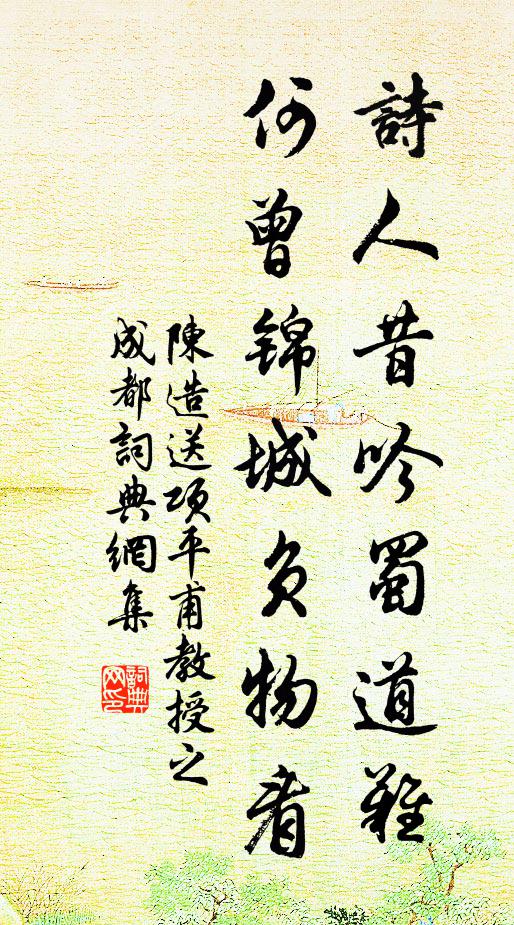 詩人昔吟蜀道難
何曾錦城負物看
陳造送項平甫教授之
成都詞典網集
詞典网印